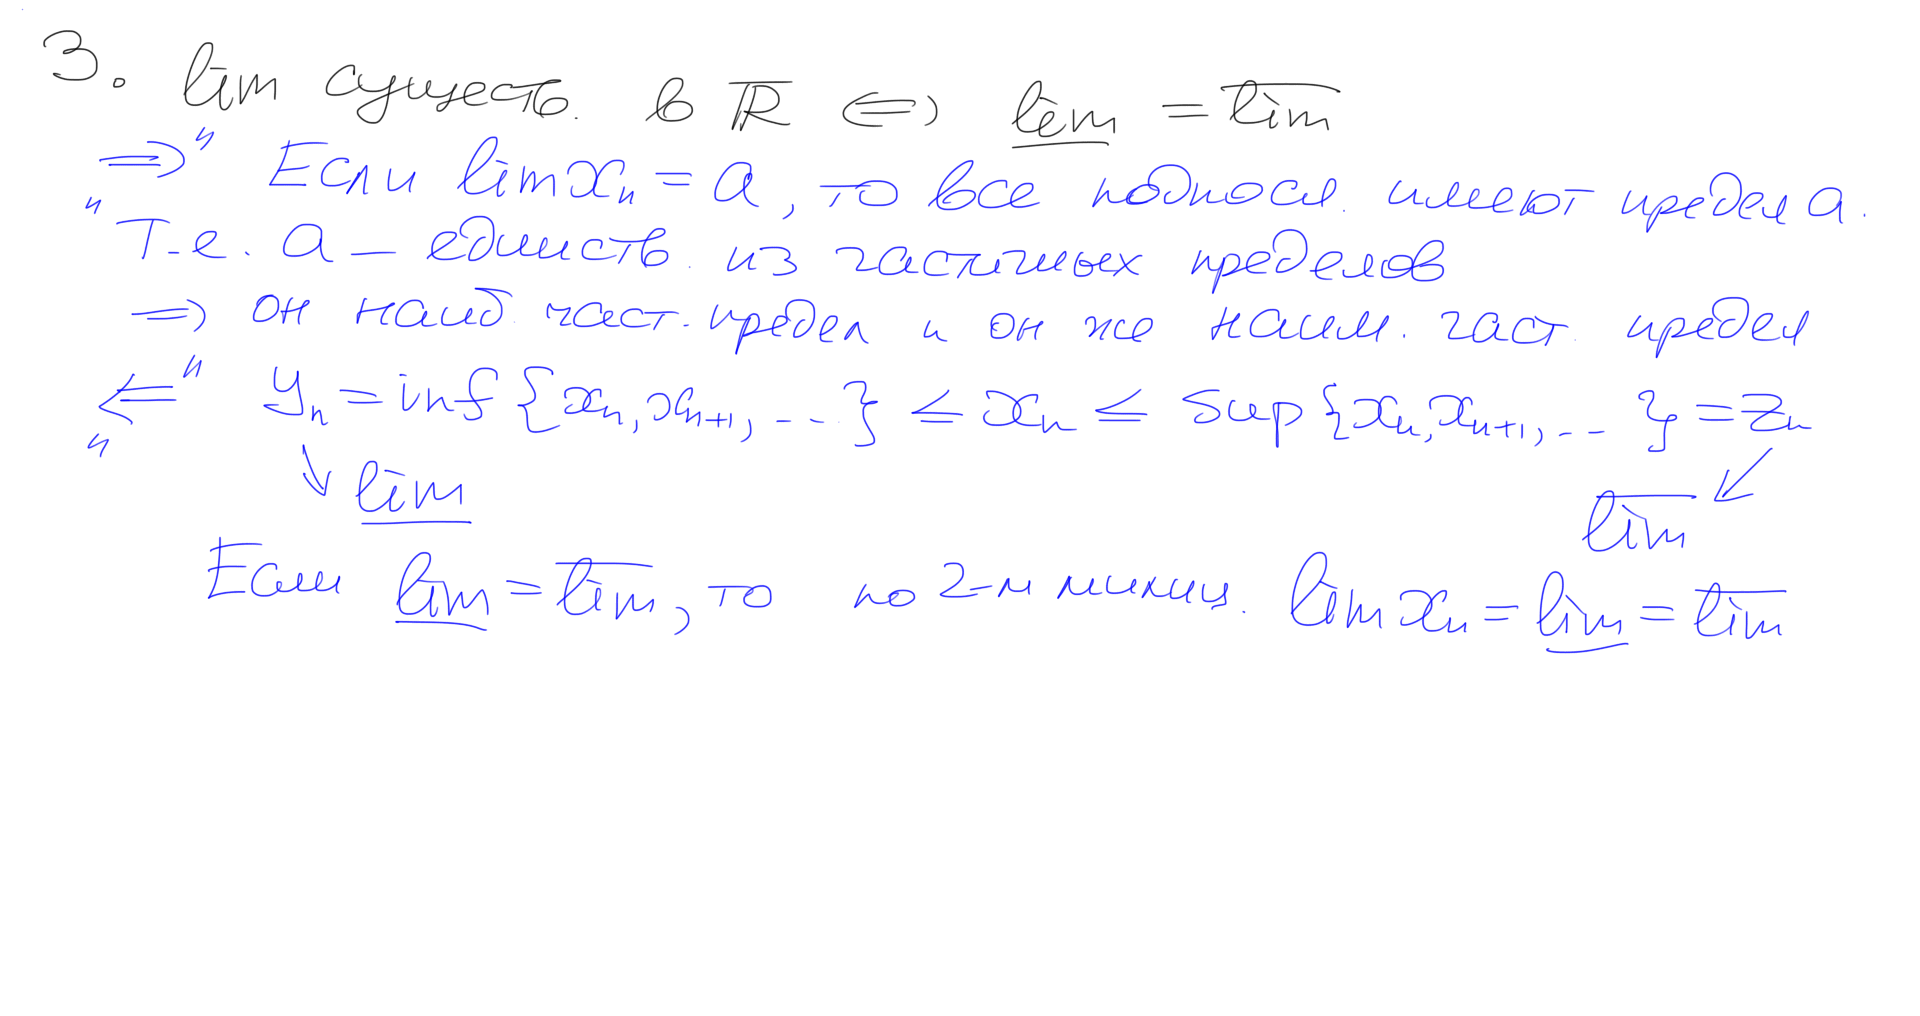 3. lim существ. в ℝ̅ ⇔ <u>lim</u> = l̅i̅m̅
"⇒" Если lim xₙ = a, то все подпосл. имеют предел a.
Т.е. a – единств. из частичных пределов
⇒ он наиб. част. предел и он же наим. част. предел
"⇐" yₙ = inf {xₙ, xₙ₊₁, ...} ≤ xₙ ≤ sup {xₙ, xₙ₊₁, ...} = zₙ
↘ <u>lim</u> ↙ l̅i̅m̅
Если <u>lim</u> = l̅i̅m̅, то по 2-м милиц. lim xₙ = <u>lim</u> = l̅i̅m̅